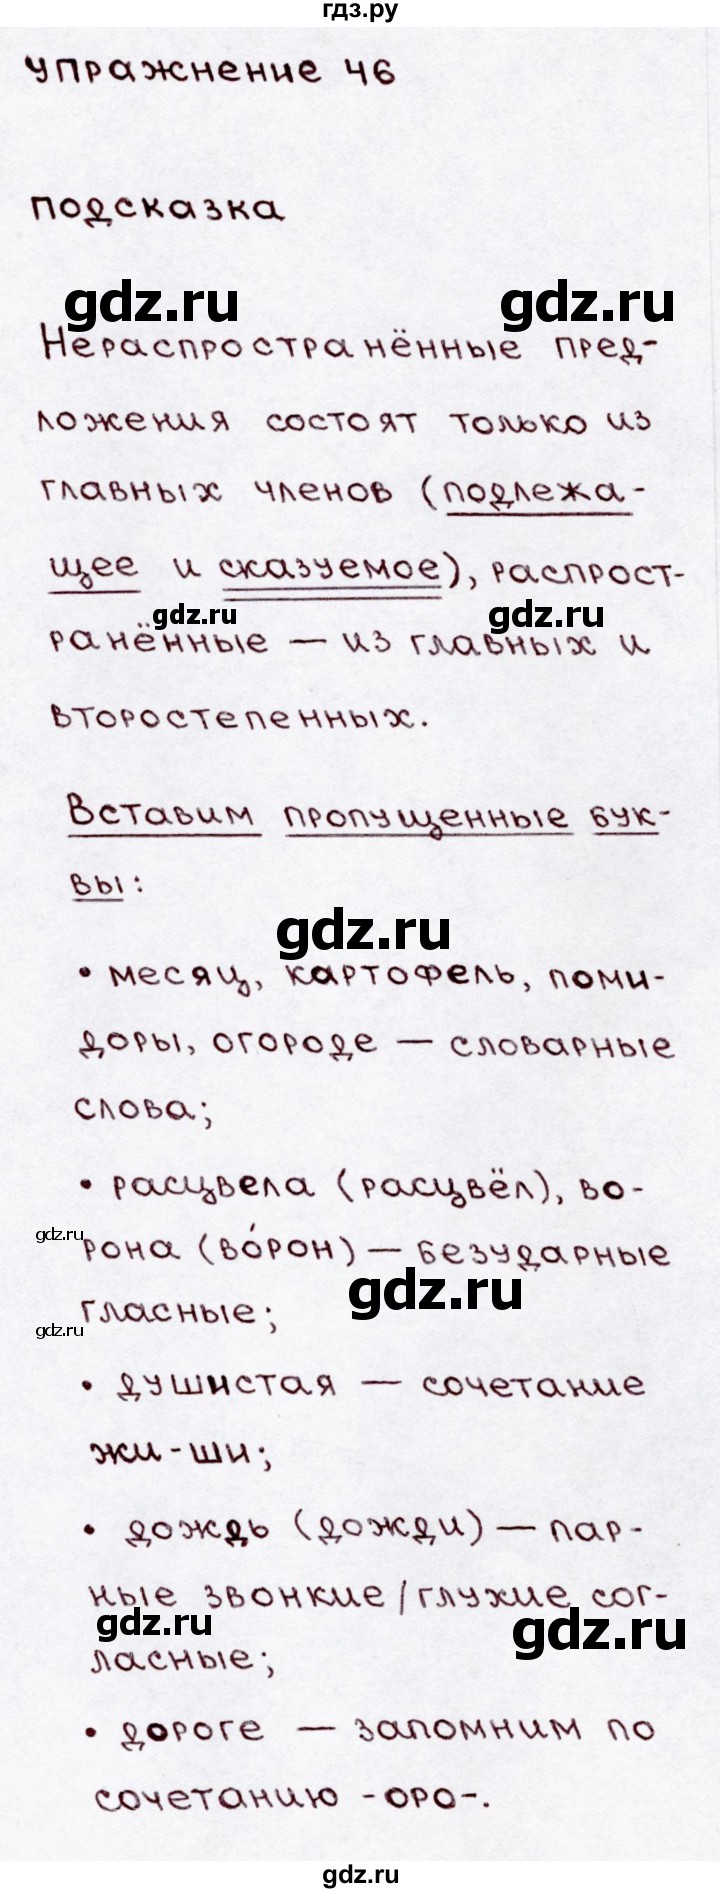 гдз.ру
упражнение 46
подсказка
gdz.ru gdz.ru
Нераспространённые пред-
ложения состоят только из
главных членов (подлежа-
щее и сказуемое), распрост-
gdz.ru gdz.ru
ранённые — из главных и
второстепенных.
Вставим пропущенные бук-
вы:
gdz.ru
• месяц, картофель, поми-
доры, огороде — словарные
слова;
• расцвела (расцвёл), во-
gdz.ru
рона (во́рон) — безударные
gdz.ru
гласные;
gdz.ru
• душистая — сочетание
жи-ши;
• дождь (дожди) — пар-
ные звонкие/глухие сог-
gdz.ru gdz.ru
ласные;
• дороге — запомним по
сочетанию -оро-.
gdz.ru